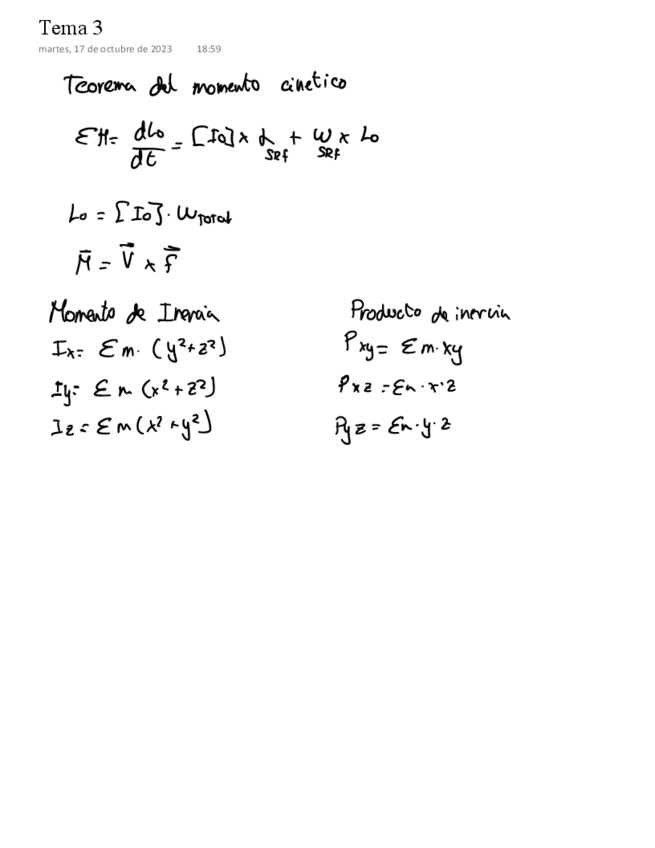 Tema 3
martes, 17 de octubre de 2023 18:59
Teorema del momento cinetico
ΣM = dLo/dt = [Io] x α + ω x Lo
SRF SRF
Lo = [Io] · ω Total
M̄ = V⃗ x F⃗
Momento de Inercia
Ix = Σ m · (y²+z²)
Iy = Σ m (x²+z²)
Iz = Σ m (x²+y²)
Producto de inercia
Pxy = Σ m · xy
Pxz = Σ m · x · z
Pyz = Σ m · y · z